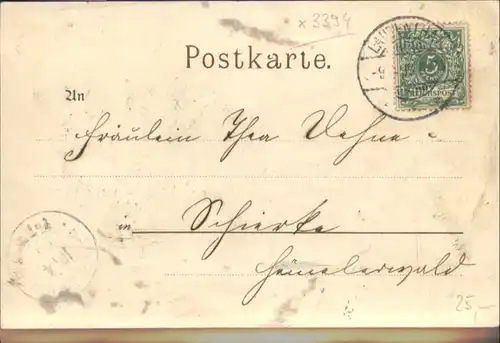 x 3394
Postkarte.
5
REICHSPOST
An
Fräulein Thea
in Schierke
25,-